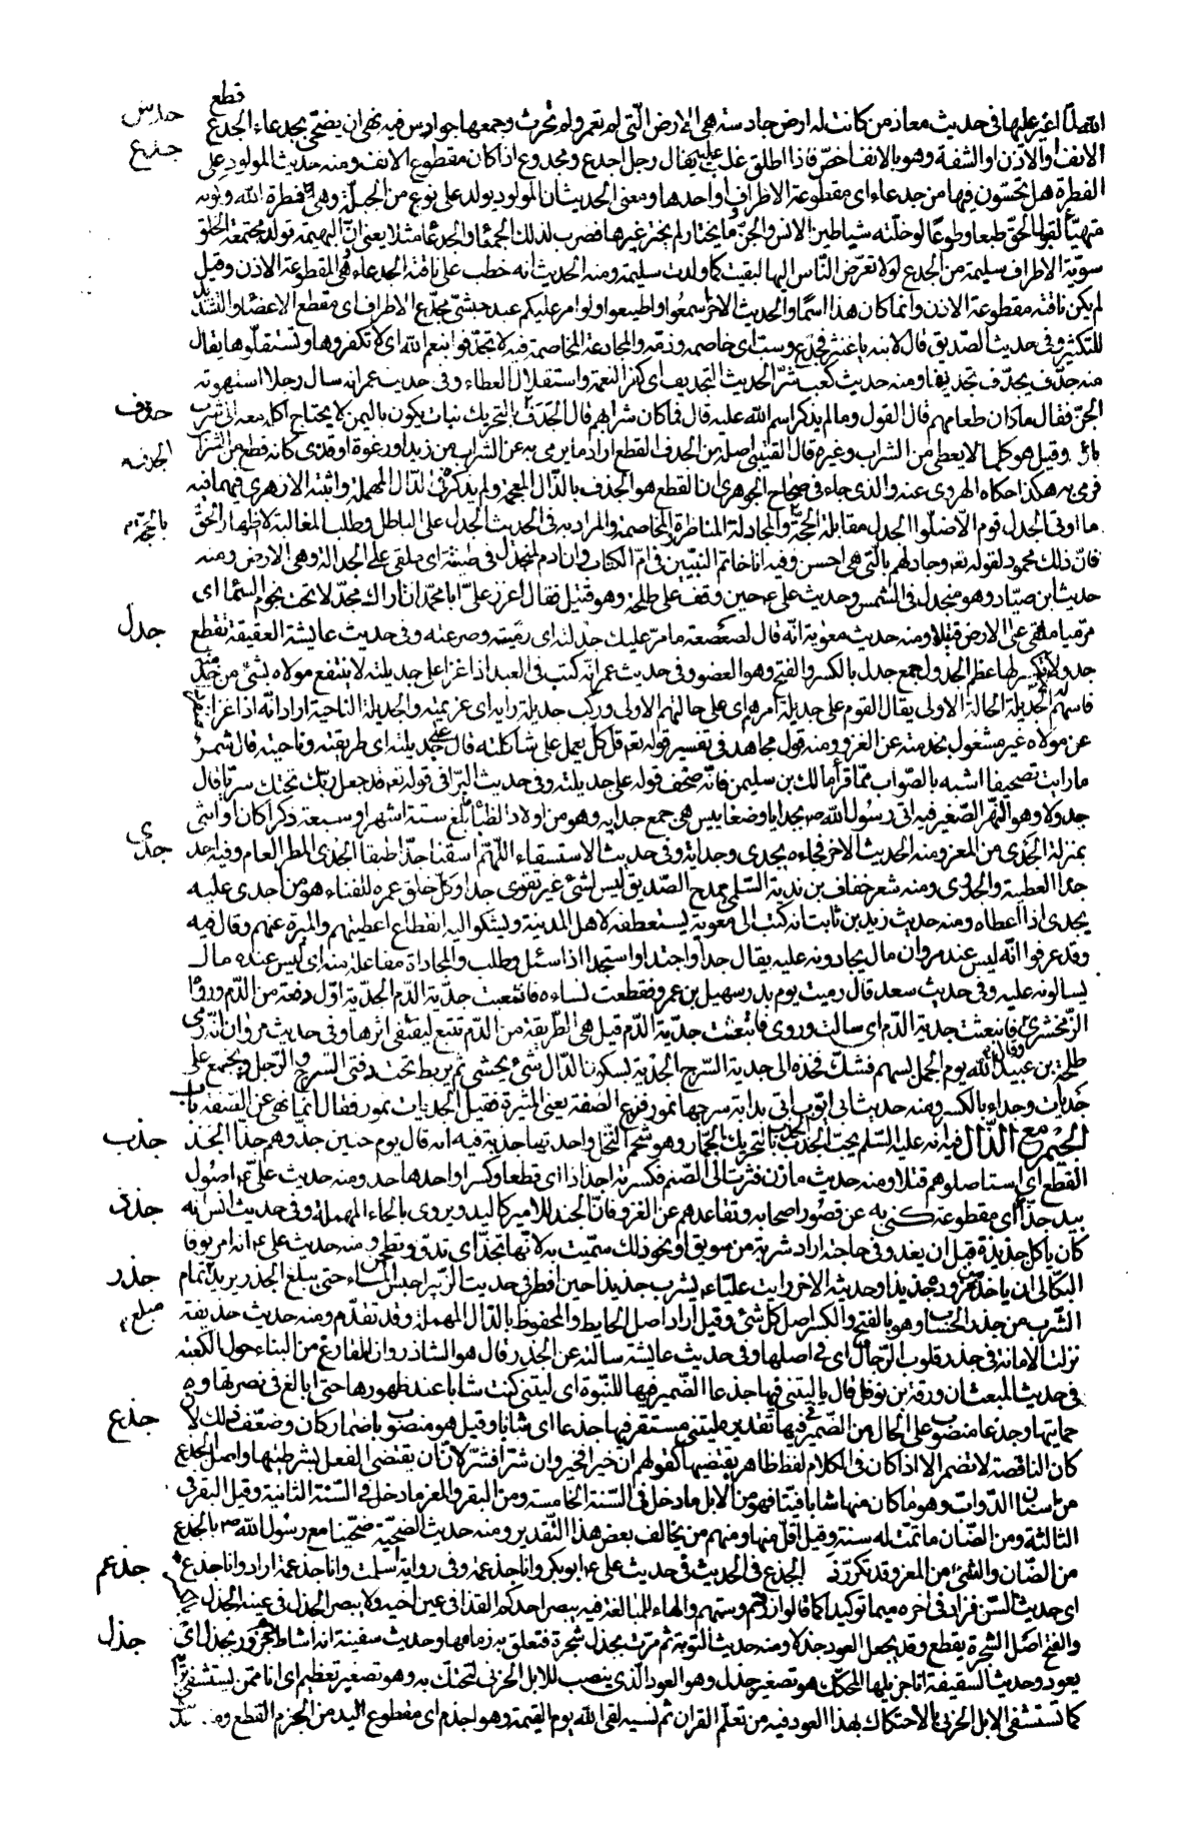 قطع
اغبر عليها فى حديث معاذ من كانت له ارض جادسة هى الارض التى لم تعمر ولم تحرث وجمعها جوادس فيه نهى ان يضحى بجدعاء الجدع
جدس
جدع
الانف والاذن والشفة وهو بالانف اخص فاذا اطلق غلب عليه يقال رجل اجدع ومجدوع اذا كان مقطوع الانف ومنه حديث المولود على
الفطرة هل تحسون فيها من جدعاء اى مقطوعة الاطراف او احدها ومعنى الحديث ان المولود يولد على نوع من الجبلة وهى فطرة الله وكونه
متهيأ لقبول الحق طبعا وطوعا لو خلته شياطين الانس والجن وما يختار لم يختر غيرها فضرب لذلك الجمعاء والجدعاء مثلا يعنى ان البهيمة تولد مجتمعة الخلق
سوية الاطراف سليمة من الجدع لولا تعرض الناس اليها لبقيت كما ولدت سليمة ومنه الحديث انه خطب على ناقته الجدعاء هى المقطوعة الاذن وقيل
لم يكن ناقته مقطوعة الاذن وانما كان هذا اسما والحديث الاخر اسمعوا واطيعوا ولو امر عليكم عبد حبشى مجدع الاطراف اى مقطع الاعضاء والتشديد
للتكثير وفى حديث الصديق قال لابنه يا غنثر فجدع وسب اى خاصمه وذمه والمجادعة المخاصمة فيه لا تجدفوا بنعم الله اى لا تكفروها وتستقلوها يقال
منه جدف يجدف تجديفا ومنه حديث كعب شر الحديث التجديف اى كفر النعمة واستقلال العطاء وفى حديث عمر انه سال رجلا استهوته
الجن فقال ما ذا كان طعامهم قال الفول وما لم يذكر اسم الله عليه قال فما كان شرابهم قال الجدف بالتحريك نبات يكون باليمن لا يحتاج اكله معه الى شرب
جدف
ماء وقيل هو كلما لا يغطى من الشراب وغيره قال القتيبى اصله من الجدف القطع اراد ما يرمى به عن الشراب من زبد او رغوة او قذى كانه قطع من الشراب
فرمى به هكذا حكاه الهروى عنه والذى جاء فى صحاح الجوهرى ان القطع هو الجذف بالذال المعجمة ولم يذكره فى الدال المهملة واثبته الازهرى فيهما فيه
ما اوتى الجدل قوم الا ضلوا الجدل مقابلة الحجة بالحجة والمجادلة المناظرة والمخاصمة والمراد به فى الحديث الجدل على الباطل وطلب المغالبة لا اظهار الحق
بالحجة
فان ذلك محمود لقوله تعه وجادلهم بالتى هى احسن وفيه انا خاتم النبيين فى ام الكتاب وان ادم لمنجدل فى طينته اى ملقى على الجدالة وهى الارض ومنه
حديث ابن صياد وهو منجدل فى الشمس وحديث على ع حين وقف على طلحة وهو قتيل فقال اعزز على ابا محمد ان اراك مجدلا تحت نجوم السماء اى
مرميا ملقى على الارض قتيلا ومنه حديث معوية انه قال لصعصعة ما مر عليك جدلته اى رميته وصرعته وفى حديث عايشة العقيقة تقطع
جدل
جدولا لا يكسر لها عظم الجدول جمع جدل بالكسر والفتح وهو العضو وفى حديث عمر انه كتب فى العبد اذا غزا على جديلته لا ينتفع مولاه بشئ من خدمته
فاسهم له الجديلة الحالة الاولى يقال القوم على جديلة امرهم اى على حالتهم الاولى وركب جديلة رايه اى عزيمته والجديلة الناحية اراد انه اذا غزا منفردا
عن مولاه غير مشغول بخدمته عن الغزو ومنه قول مجاهد فى تفسير قوله تعه قل كل يعمل على شاكلته قال على جديلته اى طريقته وناحيته قال شمر
ما رايت تصحيفا اشبه بالصواب مما قرأ مالك بن سليمن فانه صحف قوله على جديلته وفى حديث البراء فى قوله تعه قد جعل ربك تحتك سريا قال
جدولا وهو النهر الصغير فيه اتى رسول الله ص بجدايا وضغابيس هى جمع جداية وهو من اولاد الظباء ما بلغ ستة اشهر او سبعة ذكرا كان او انثى
بمنزلة الجدى من المعز ومنه الحديث الاخر فجاءه بجدى وجداية وفى حديث الاستسقاء اللهم اسقنا جدا طبقا الجدى المطر العام وفيه اخذ
جدى
جدا العطية والجدوى ومنه شعر خفاف بن ندبة السلمى يمدح الصديق ليس لشئ غير تقوى جداء وكل خلق عمره للفناء هو من اجدى عليه
يجدى اذا اعطاه ومنه حديث زيد بن ثابت انه كتب الى معوية يستعطفه لاهل المدينة ويشكو اليه انقطاع اعطيتهم والميرة عنهم وقال فيه
وقد عرفوا انه ليس عند مروان مال يجادونه عليه يقال جدا واجتدا واستجدا اذا سئل وطلب والمجاداة مفاعلة منه اى ليس عنده مال
يسالونه عليه وفى حديث سعد قال رميت يوم بدر سهيل بن عمرو فقطعت نساءه فانثعبت جدية الدم الجدية اول دفعة من الدم ورواه
الزمخشرى فانبعثت جدية الدم اى سالت وروى فاتبعت جدية الدم قيل هى الطريقة من الدم تتبع ليقتفى اثرها وفى حديث مروان انه رمى
طلحة بن عبيد الله يوم الجمل بسهم فشك فخذه الى جدية السرج الجدية بسكون الدال شئ يحشى ثم يربط تحت دفتى السرج والرحل ويجمع على
جديات وجداء بالكسر ومنه حديث ابى ايوب اتى بدابة سرجها نمور فنزع الصفة يعنى الميثرة فقيل الجديات نمور فقال انما نهى عن الصفة باب
الجيم مع الذال فيه انه عليه السلم يحب الجذب الجذب بالتحريك الجمار وهو شحم النخل واحدتها جذبة فيه انه قال يوم حنين جذوهم جذا الجذ
جذب
القطع اى استاصلوهم قتلا ومنه حديث مازن فثرت الى الصنم فكسرته اجذاذا اى قطعا وكسرا واحدها جذ ومنه حديث على ع اصول
بيد جذاء اى مقطوعة كنى به عن قصور اصحابه وتقاعدهم عن الغزو فان الجند للامير كاليد ويروى بالحاء المهملة وفى حديث انس انه
جذذ
كان ياكل جذيذة قبل ان يغدو فى حاجته اراد شربة من سويق او نحو ذلك سميت به لانها تجذ اى تدق وتطحن ومنه حديث على ع انه امر نوفا
البكالى ان ياخذ من مزوده جذيذا وحديثه الاخر رايت عليا ع يشرب جذيذا حين افطر فى حديث الزبير احبس الماء حتى يبلغ الجذر يريد تمام
جذر
الشرب من جذر الحساب وهو بالفتح والكسر اصل كل شئ وقيل اراد اصل الحايط والمحفوظ بالدال المهملة وقد تقدم ومنه حديث حذيفة
مبلغ
نزلت الامانة فى جذر قلوب الرجال اى فى اصلها وفى حديث عايشة سالته عن الجذر قال هو الشاذروان الفارغ من البناء حول الكعبة
فى حديث المبعث ان ورقة بن نوفل قال يا ليتنى فيها جذعا الضمير فيها للنبوة اى ليتنى كنت شابا عند ظهورها حتى ابالغ فى نصرتها و
حمايتها وجذعا منصوب على الحال من الضمير فى فيها تقديره ليتنى مستقر فيها جذعا اى شابا وقيل هو منصوب باضمار كان وضعف ذلك لان
جذع
كان الناقصة لا تضمر الا اذا كان فى الكلام لفظ ظاهر يقتضيها كقولهم ان خيرا فخير وان شرا فشر لان ان يقتضى الفعل بشرطيتها واصل الجذع
من اسنان الدواب وهو ما كان منها شابا فتيا فهو من الابل ما دخل فى السنة الخامسة ومن البقر والمعز ما دخل فى السنة الثانية وقيل البقر فى
الثالثة ومن الضان ما تمت له سنة وقيل اقل منها ومنهم من يخالف بعض هذا التقدير ومنه حديث الضحية ضحينا مع رسول الله ص بالجذع
من الضان والثنى من المعز وقد تكرر ذكر الجذع فى الحديث فى حديث على ع اسلم ابو بكر وانا جذعمة وفى رواية اسلمت وانا جذعمة اراد وانا جذع
جذعم
اى حديث السن فزاد فى اخره ميما توكيدا كما قالوا زرقم وستهم والهاء للمبالغة فيه يبصر احدكم القذا فى عين اخيه ولا يبصر الجذل فى عينه الجذل
والفتح اصل الشجرة يقطع وقد يجعل العود جذلا ومنه حديث التوبة ثم مرت بجذل شجرة فتعلق به زمامها وحديث سفينة انه اشاط دم جزور بجذل اى
جذل
بعود وحديث السقيفة انا جذيلها المحكك هو تصغير جذل وهو العود الذى ينصب للابل الجربى لتحتك به وهو تصغير تعظيم اى انا ممن يستشفى برأيه
كما تستشفى الابل الجربى بالاحتكاك بهذا العود فيه من تعلم القران ثم نسيه لقى الله يوم القيمة وهو اجذم اى مقطوع اليد من الجذم القطع ومنه